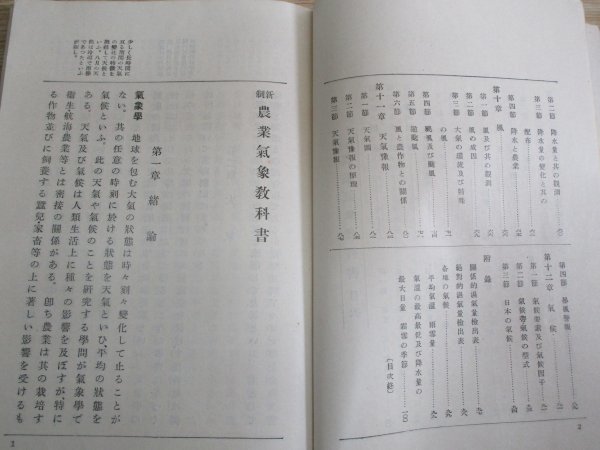 第二節 降水量と其の觀測
第三節 降水量の變化と其の
配布
第四節 降水と農業
第十章 風
第一節 風及び其の觀測
第二節 風の成因
第三節 大氣の環流及び特殊
の風
第四節 颶風及び颱風
第五節 龍颱風
第六節 風と農作物との關係
第十一章 天氣豫報
第一節 天氣圖
第二節 天氣豫報の原理
第三節 天氣豫報
第四節 暴風警報
第十二章 氣候
第一節 氣候要素及び氣候因子
第二節 氣候帶氣候の型式
第三節 日本の氣候
附錄
關係的濕氣量檢出表
絕對的濕氣量檢出表
各地の氣候
平均氣溫 雨雪量
氣溫の最高最低及び降水量の
最大日量 霜雪の季節 一〇〇
〔目次終〕
2
新制 農業氣象敎科書
第一章 緖論
氣象學 地球を包む大氣の狀態は時々刻々變化して止ることが
ない。其の任意の時刻に於ける狀態を天氣といひ、平均の狀態を
氣候といふ。此の天氣や氣候のことを硏究する學問が氣象學で
ある。天氣及び氣候は人類生活上に種々の影響を及ぼすが、特に
衞生航海農業等とは密接の關係がある。卽ち農業は其の栽培す
る作物並びに飼養する蠶兒家畜等の上に著しい影響を受けるも
少しく長時間に
亙る期間の天氣
の變化の特徵を
總括して天候と
いふ。八月の天
候は冷濕で雨勝
であつたといふ
が如し。
1